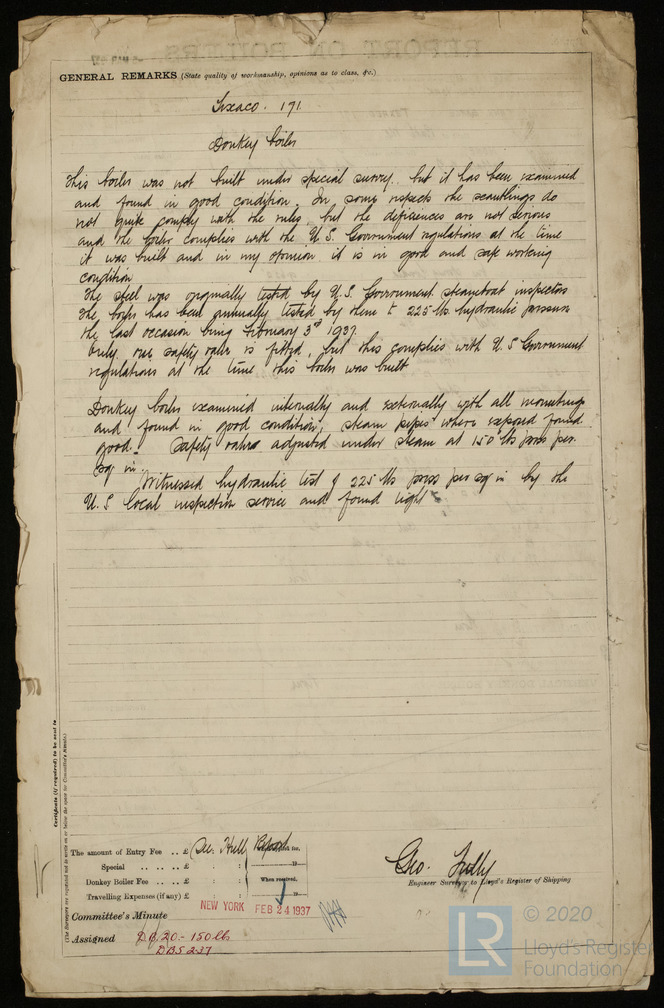 GENERAL REMARKS (State quality of workmanship, opinions as to class, &c.)
Texaco. 171.
Donkey boiler
This boiler was not built under special survey. but it has been examined
and found in good condition. In some respects the scantlings do
not quite comply with the rules, but the deficiences are not serious
and the boiler complies with the U.S. Government regulations at the time
it was built and in my opinion it is in good and safe working
condition
The steel was originally tested by U.S. Government steamboat inspectors
The boiler has been annually tested by them to 225 lbs. hydraulic pressure
the last occasion being February 3rd 1937.
Only one safety valve is fitted, but this complies with U.S Government
regulations at the time this boiler was built
Donkey boiler examined internally and externally with all mountings
and found in good condition, steam pipes where exposed found
good. Safety valve adjusted under steam at 150 lbs press per.
sq in.
Witnessed hydraulic test of 225 lbs press per sq in by the
U.S local inspection service and found tight
Certificate (if required) to be sent to
The amount of Entry Fee .. £ See Hull Report
Special .. £
Donkey Boiler Fee .. £
When received,
Travelling Expenses (if any) £
19
Geo. 
Engineer Surveyor to Lloyd's Register of Shipping
NEW YORK FEB 24 1937
Committee's Minute
Assigned DB, 20 - 150 lb
DBS 2.37
© 2020
LR
Lloyd's Register
Foundation